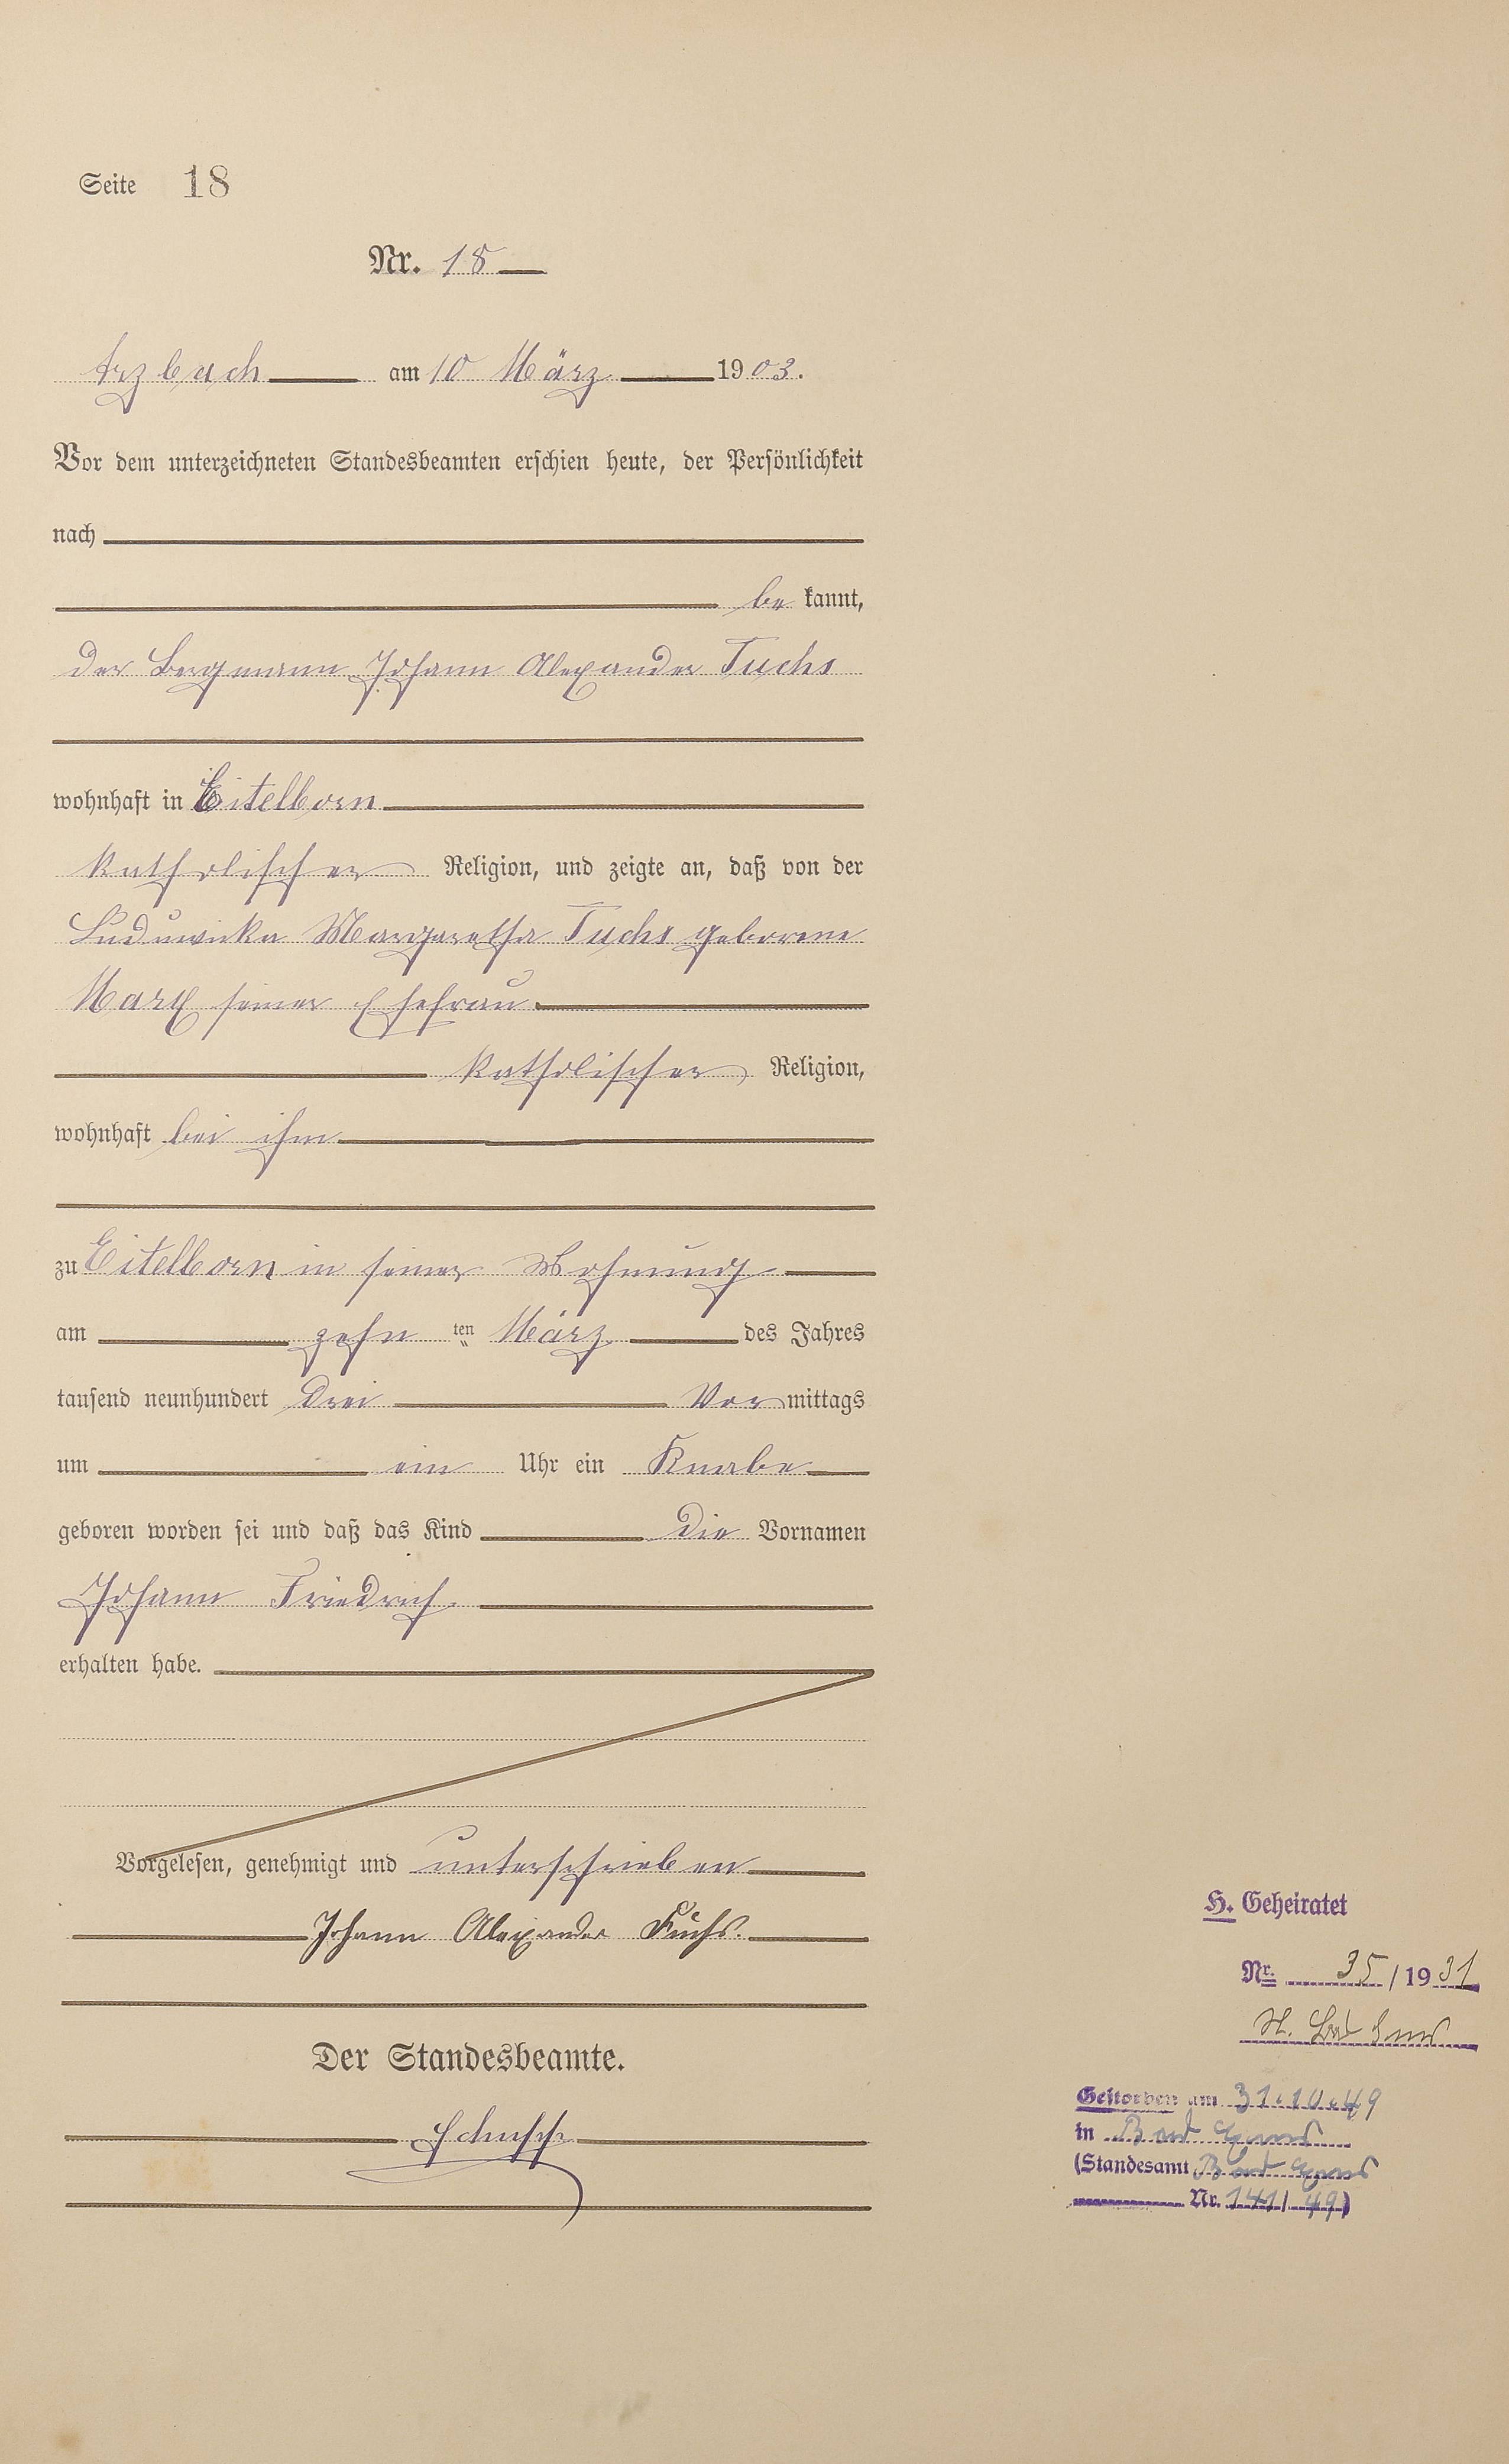 Seite 18
Nr. 18
Arzbach am 10 März 1903.
Vor dem unterzeichneten Standesbeamten erschien heute, der Persönlichkeit
nach
be kannt,
der Bergmann Johann Alexander Fuchs
wohnhaft in Eitelborn
katholischer Religion, und zeigte an, daß von der
Margaretha Fuchs geborene
Marx seiner Ehefrau
katholischer Religion,
wohnhaft bei ihm
zu Eitelborn in seiner Wohnung
am zehn ten März des Jahres
tausend neunhundert drei Vormittags
um ein Uhr ein Knabe
geboren worden sei und daß das Kind die Vornamen
Johann Friedrich
erhalten habe.
Vorgelesen, genehmigt und unterschrieben
Johann Alexander Fuchs.
Der Standesbeamte.
H. Geheiratet
Nr. 35/1931
Gestorben am 31.10.49
in Bad Ems
(Standesamt Bad Ems
Nr. 141/49)